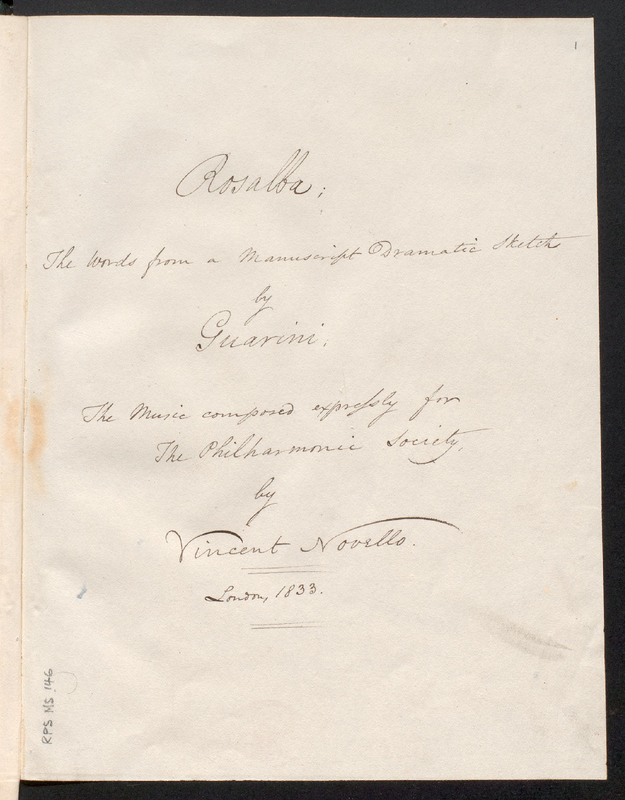 1
Rosalba;
The Words from a Manuscript Dramatic Sketch
by
Guarini;
The Music composed expressly for
The Philharmonic Society,
by
Vincent Novello.
London, 1833.
RPS MS 146